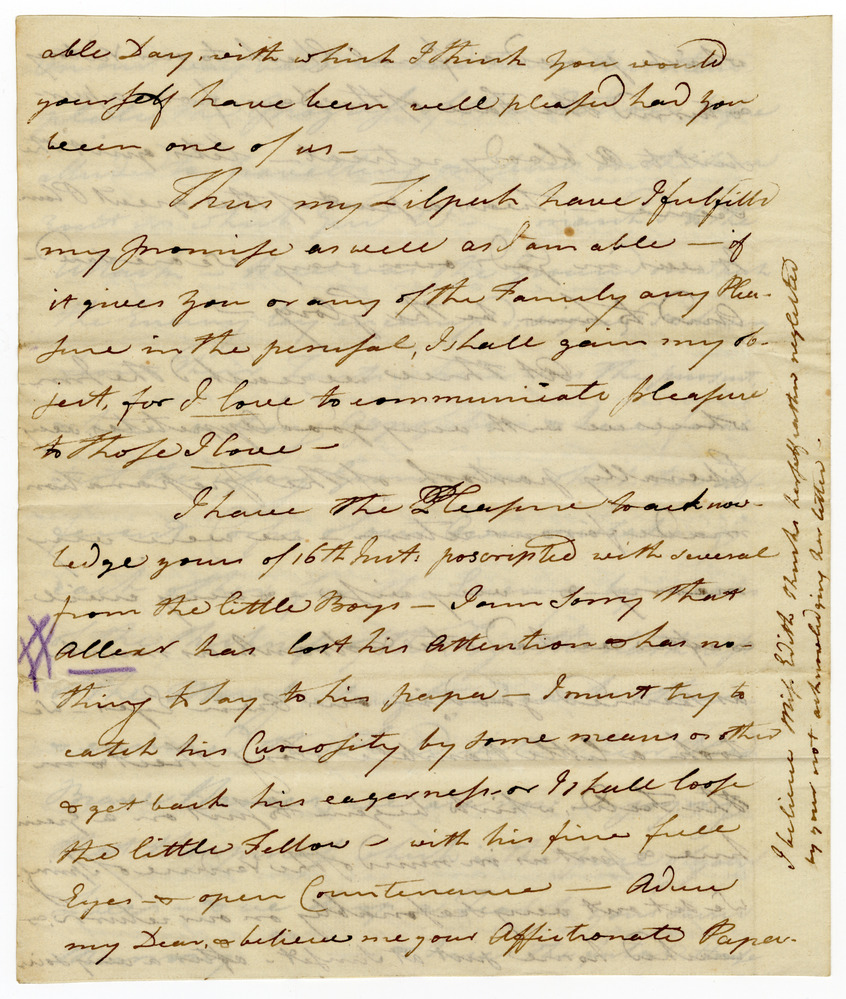 able Day, with which I think you would
yourself have been well pleased had you
been one of us —
Thus my Zilpah have I fulfill'd
my promise as well as I am able — if
it gives you or any of the Family any Plea-
sure in the perusal, I shall gain my ob-
ject, for I love to communicate pleasure
to those I love —
I have the Pleasure to acknow-
ledge yours of 16th Inst: poscripted with several
from the little Boys — I am sorry that
Allexr has lost his Attention & has no-
thing to say to his papa — I must try to
catch his Curiosity by some means or other
& get back his eagerness, or I shall loose
the little Fellow — with his fine full
Eyes — & open Countenance — Adieu
my Dear, & believe me your Affectionate Papa.
I believe Miss Edith thinks herself rather neglected
by your not acknowledging her letter.